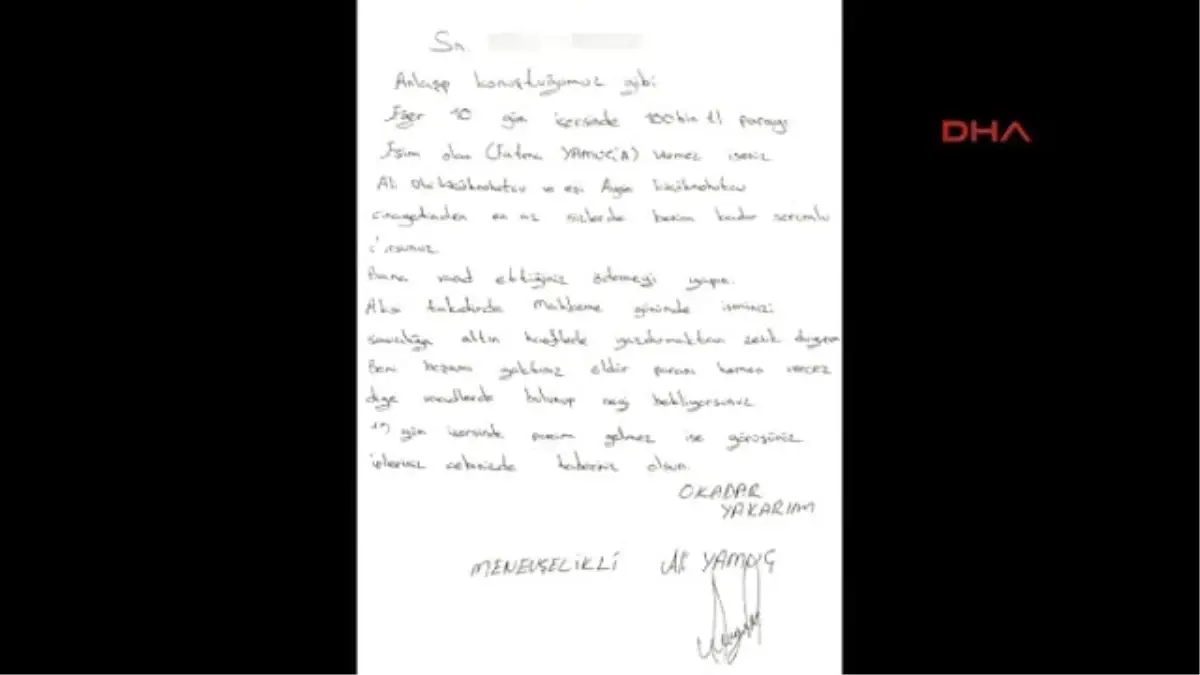 Sn.
Anlaşıp konuştuğumuz gibi
Eğer 10 gün içersinde 100 bin tl parayı
Eşim olan (Fatma YAMUÇ'A) vermez iseniz
Ali Ulvi Büyüknohutçu ve eşi Aysin Büyüknohutçu
cinayetinden en az sizlerde benim kadar sorumlu
Bana vaad ettiğiniz ödemeyi yapın.
Aksi takdirde Mahkeme gününde isminizi
savcılığa altın harflerle yazdırmaktan zevk duyarım
Beni başımı yaktınız öldür paranı hemen vercez
diye vaadlerde bulunup neyi bekliyorsunuz
gün içersinde param gelmez ise görüşürüz
haberiniz olsun.
OKADAR
YAKARIM
MENEVŞELİKLİ Ali YAMUÇ
DHA